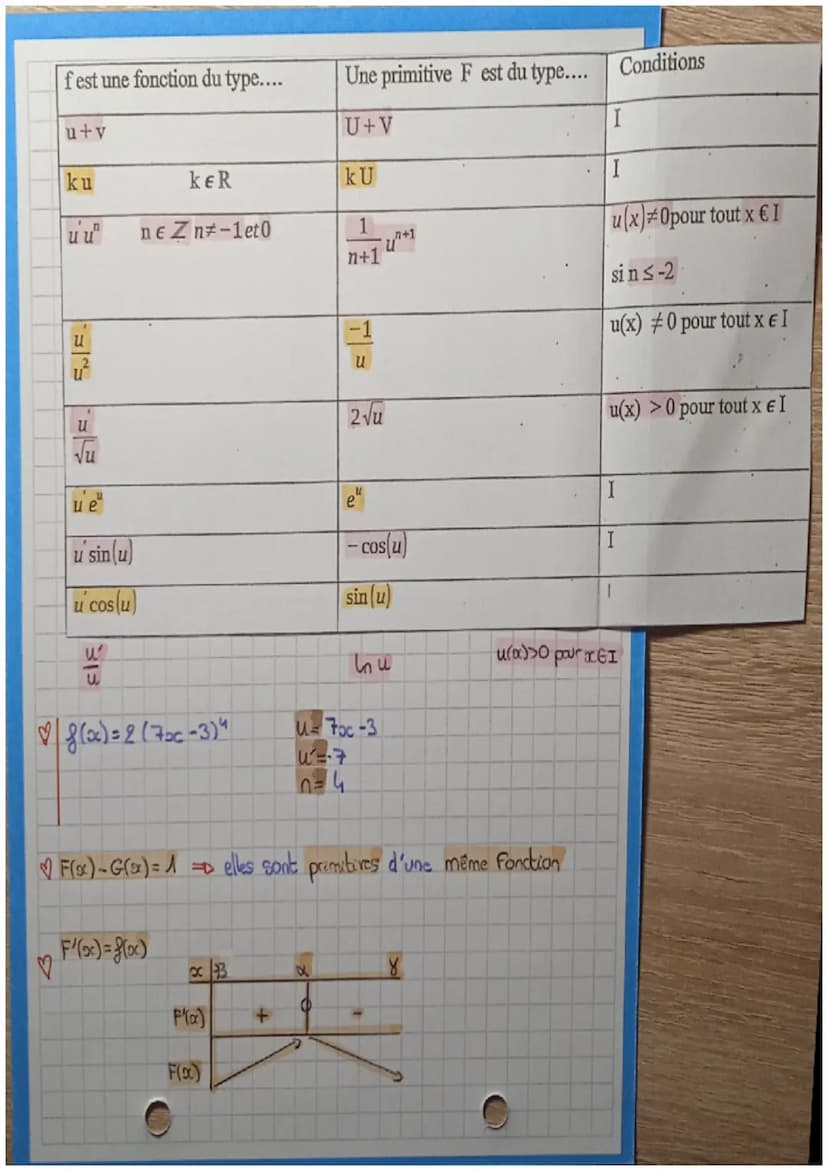 f est une fonction du type.... Une primitive F est du type.... Conditions
u+v U+V I
k u k ϵ R k U I
u'uⁿ n ϵ Z n≠−1et0 1/(n+1) uⁿ⁺¹ u(x)≠0pour tout x € I
si n ≤ -2
u'/u² −1/u u(x) ≠ 0 pour tout x ϵ I
u'/√u 2√u u(x) > 0 pour tout x ϵ I
u'eᵘ eᵘ I
u'sin(u) −cos(u) I
u'cos(u) sin(u) I
u'/u ln u u(x)>0 pour x∈I
♡ f(x)=2(7x-3)⁴ u=7x-3
u'=7
n=4
♡ F(x)-G(x)=1 ⇒ elles sont primitives d'une même fonction
♡ F'(x)=f(x)
x β α γ
F'(x) + 0 -
F(x)